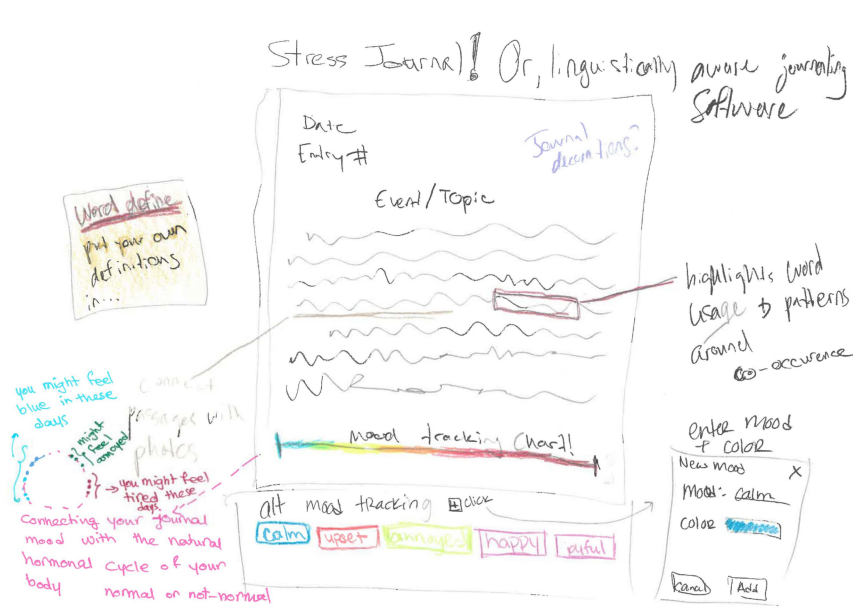 Stress Journal! Or, linguistically aware journaling
Software
Date
Entry #
Journal
decorations?
Event/Topic
Word define
put your own
definitions
in...
highlights word
usage & patterns
around
co-occurence
connect
passages with
photos
you might feel
blue in these
days
might
feel
annoyed
you might feel
tired these
days.
connecting your journal
mood with the natural
hormonal cycle of your
body
normal or not-normal
mood tracking chart!
alt mood tracking + click
calm upset annoyed happy joyful
enter mood
+ color
New mood X
mood: calm
color
Cancel Add